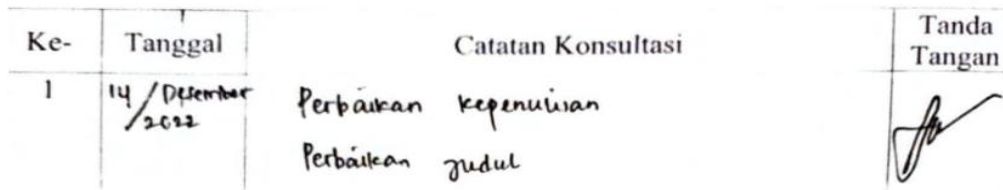 Ke- Tanggal Catatan Konsultasi Tanda Tangan
1 14/Desember/2022 Perbaikan kepenulisan
Perbaikan Judul